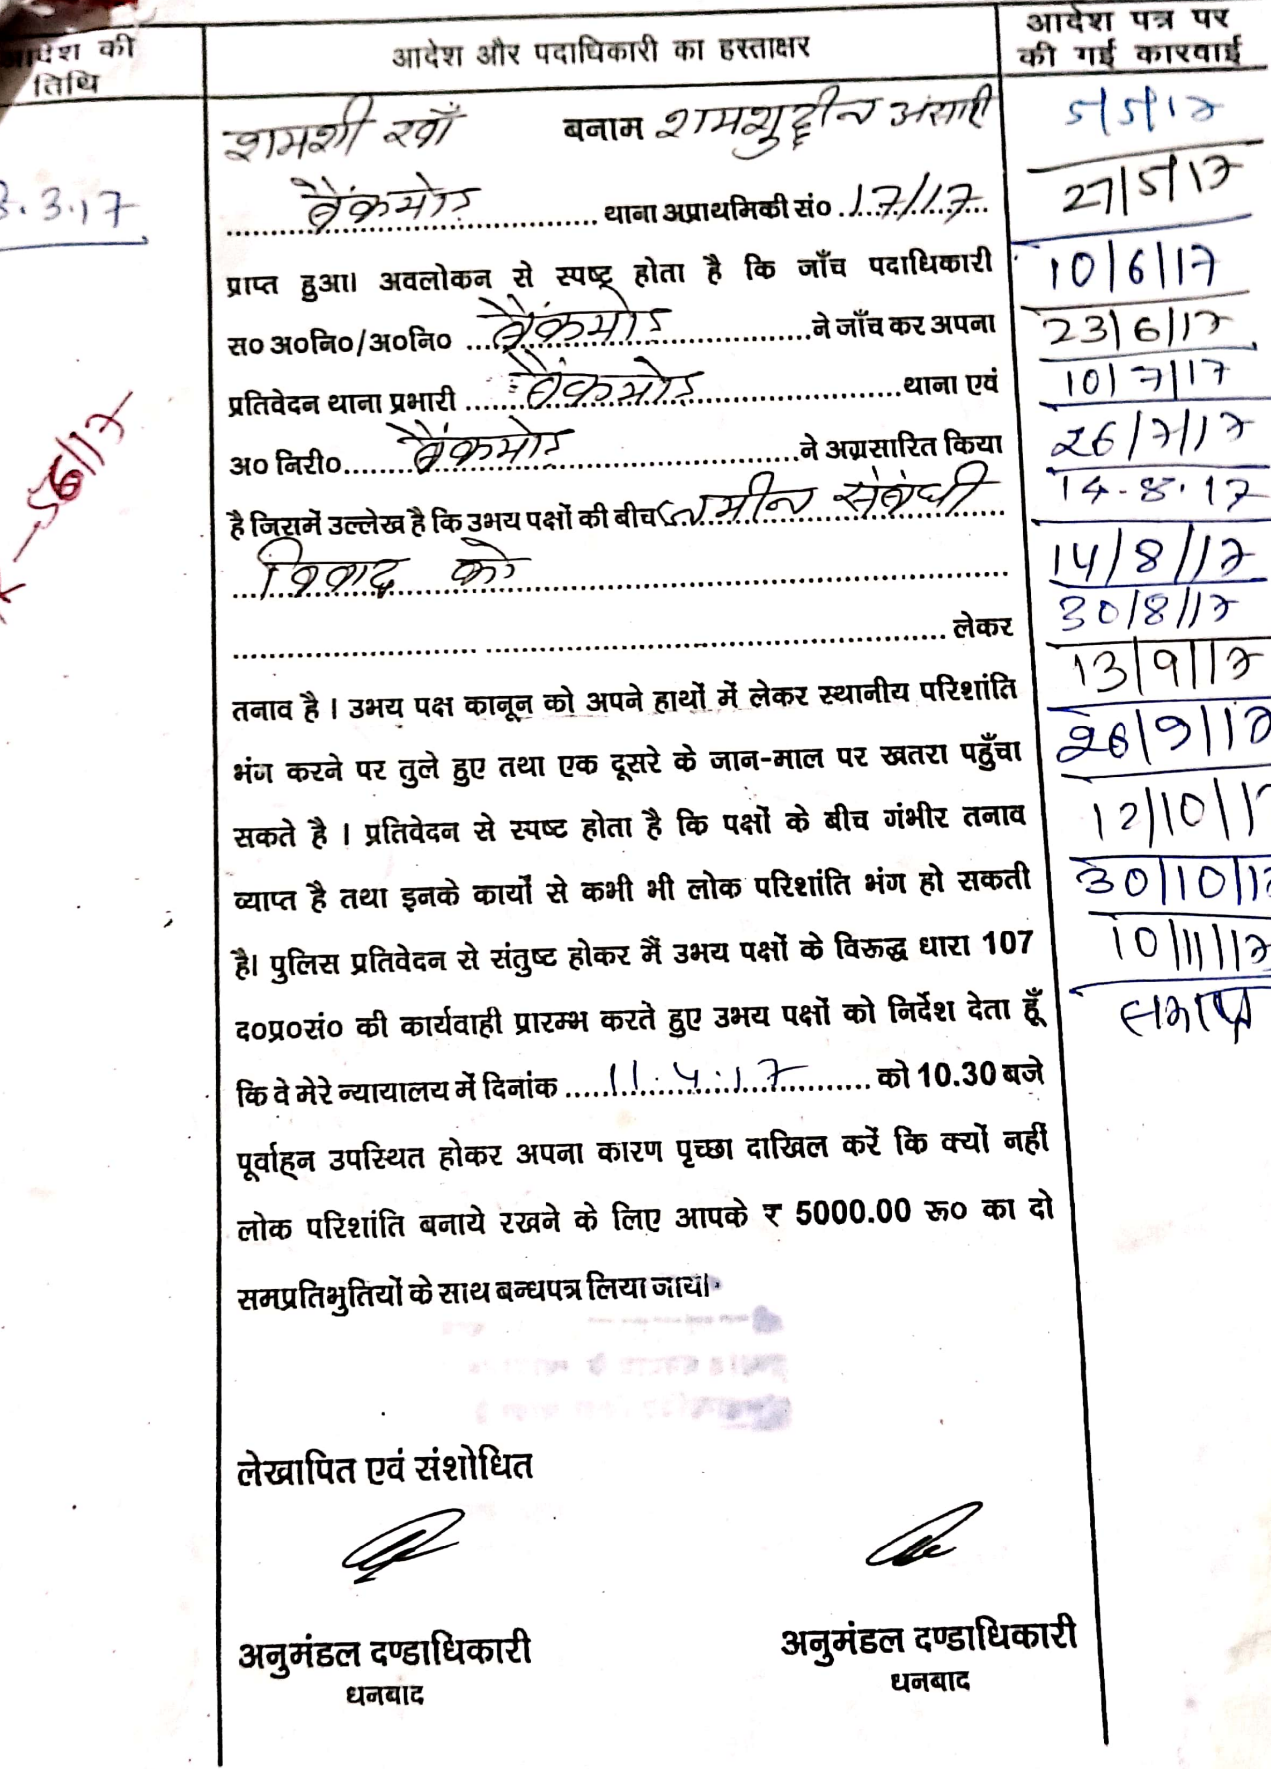 आदेश की
तिथि
आदेश और पदाधिकारी का हस्ताक्षर
आदेश पत्र पर
की गई कारवाई
शमशी खाँ बनाम शमशुद्दीन अंसारी
3.17
बैंकमोड़ थाना अप्राथमिकी सं० 17/17
प्राप्त हुआ। अवलोकन से स्पष्ट होता है कि जाँच पदाधिकारी
स० अ०नि०/अ०नि० बैंकमोड़ ने जाँच कर अपना
प्रतिवेदन थाना प्रभारी बैंकमोड़ थाना एवं
अ० निरी० बैंकमोड़ ने अग्रसारित किया
है जिसमें उल्लेख है कि उभय पक्षों की बीच जमीन संबंधी
विवाद को
लेकर
तनाव है। उभय पक्ष कानून को अपने हाथों में लेकर स्थानीय परिशांति
भंग करने पर तुले हुए तथा एक दूसरे के जान-माल पर खतरा पहुँचा
सकते है। प्रतिवेदन से स्पष्ट होता है कि पक्षों के बीच गंभीर तनाव
व्याप्त है तथा इनके कार्यों से कभी भी लोक परिशांति भंग हो सकती
है। पुलिस प्रतिवेदन से संतुष्ट होकर मैं उभय पक्षों के विरूद्ध धारा 107
द०प्र०सं० की कार्यवाही प्रारम्भ करते हुए उभय पक्षों को निर्देश देता हूँ
कि वे मेरे न्यायालय में दिनांक 11.4.17 को 10.30 बजे
पूर्वाह्न उपस्थित होकर अपना कारण पृच्छा दाखिल करें कि क्यों नहीं
लोक परिशांति बनाये रखने के लिए आपके ₹ 5000.00 रू० का दो
समप्रतिभुतियों के साथ बन्धपत्र लिया जाय।
लेखापित एवं संशोधित
अनुमंडल दण्डाधिकारी
धनबाद
अनुमंडल दण्डाधिकारी
धनबाद
5/5/17
27/5/17
10/6/17
23/6/17
10/7/17
26/7/17
14.8.17
14/8/17
30/8/17
13/9/17
26/9/17
12/10/1
30/10/17
10/11/17
समाप्त